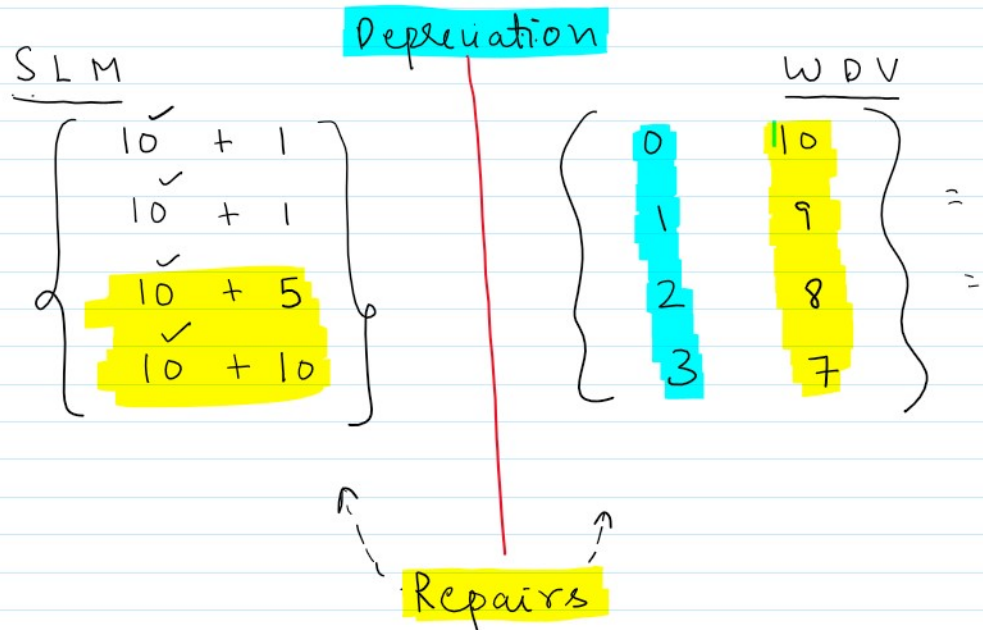 Depreciation
SLM
WDV
10 + 1
10 + 1
10 + 5
10 + 10
0 10
1 9
2 8
3 7
=
=
Repairs